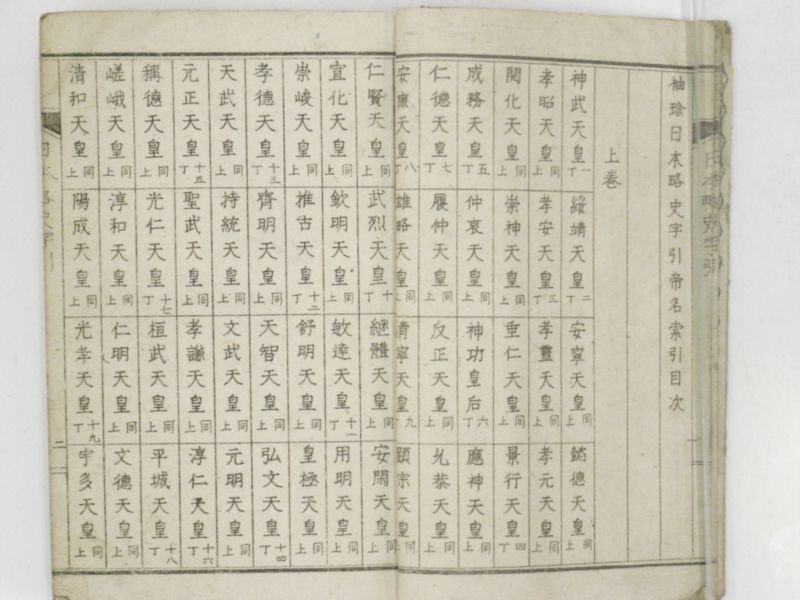 日本略史字引
一
袖珍日本略史字引帝名索引目次
上卷
神武天皇一丁 綏靖天皇二丁 安寧天皇同上 懿德天皇同上
孝昭天皇同上 孝安天皇三丁 孝靈天皇同上 孝元天皇同上
開化天皇同上 崇神天皇同上 垂仁天皇同上 景行天皇四丁
成務天皇五丁 仲哀天皇同上 神功皇后六丁 應神天皇同上
仁德天皇七丁 履仲天皇同上 反正天皇同上 允恭天皇同上
安康天皇八丁 雄略天皇 清寧天皇九丁 顕宗天皇同上
仁賢天皇同上 武烈天皇十丁 継體天皇同上 安閑天皇同上
宣化天皇同上 欽明天皇同上 敏達天皇十一丁 用明天皇同上
崇峻天皇同上 推古天皇十二丁 舒明天皇同上 皇極天皇同上
孝德天皇十三丁 齊明天皇同上 天智天皇同上 弘文天皇十四丁
天武天皇同上 持統天皇同上 文武天皇同上 元明天皇同上
元正天皇十五丁 聖武天皇同上 孝謙天皇同上 淳仁天皇十六丁
稱德天皇同上 光仁天皇十七丁 桓武天皇同上 平城天皇十八丁
嵯峨天皇同上 淳和天皇同上 仁明天皇同上 文德天皇同上
清和天皇同上 陽成天皇同上 光孝天皇十九丁 宇多天皇同上
二